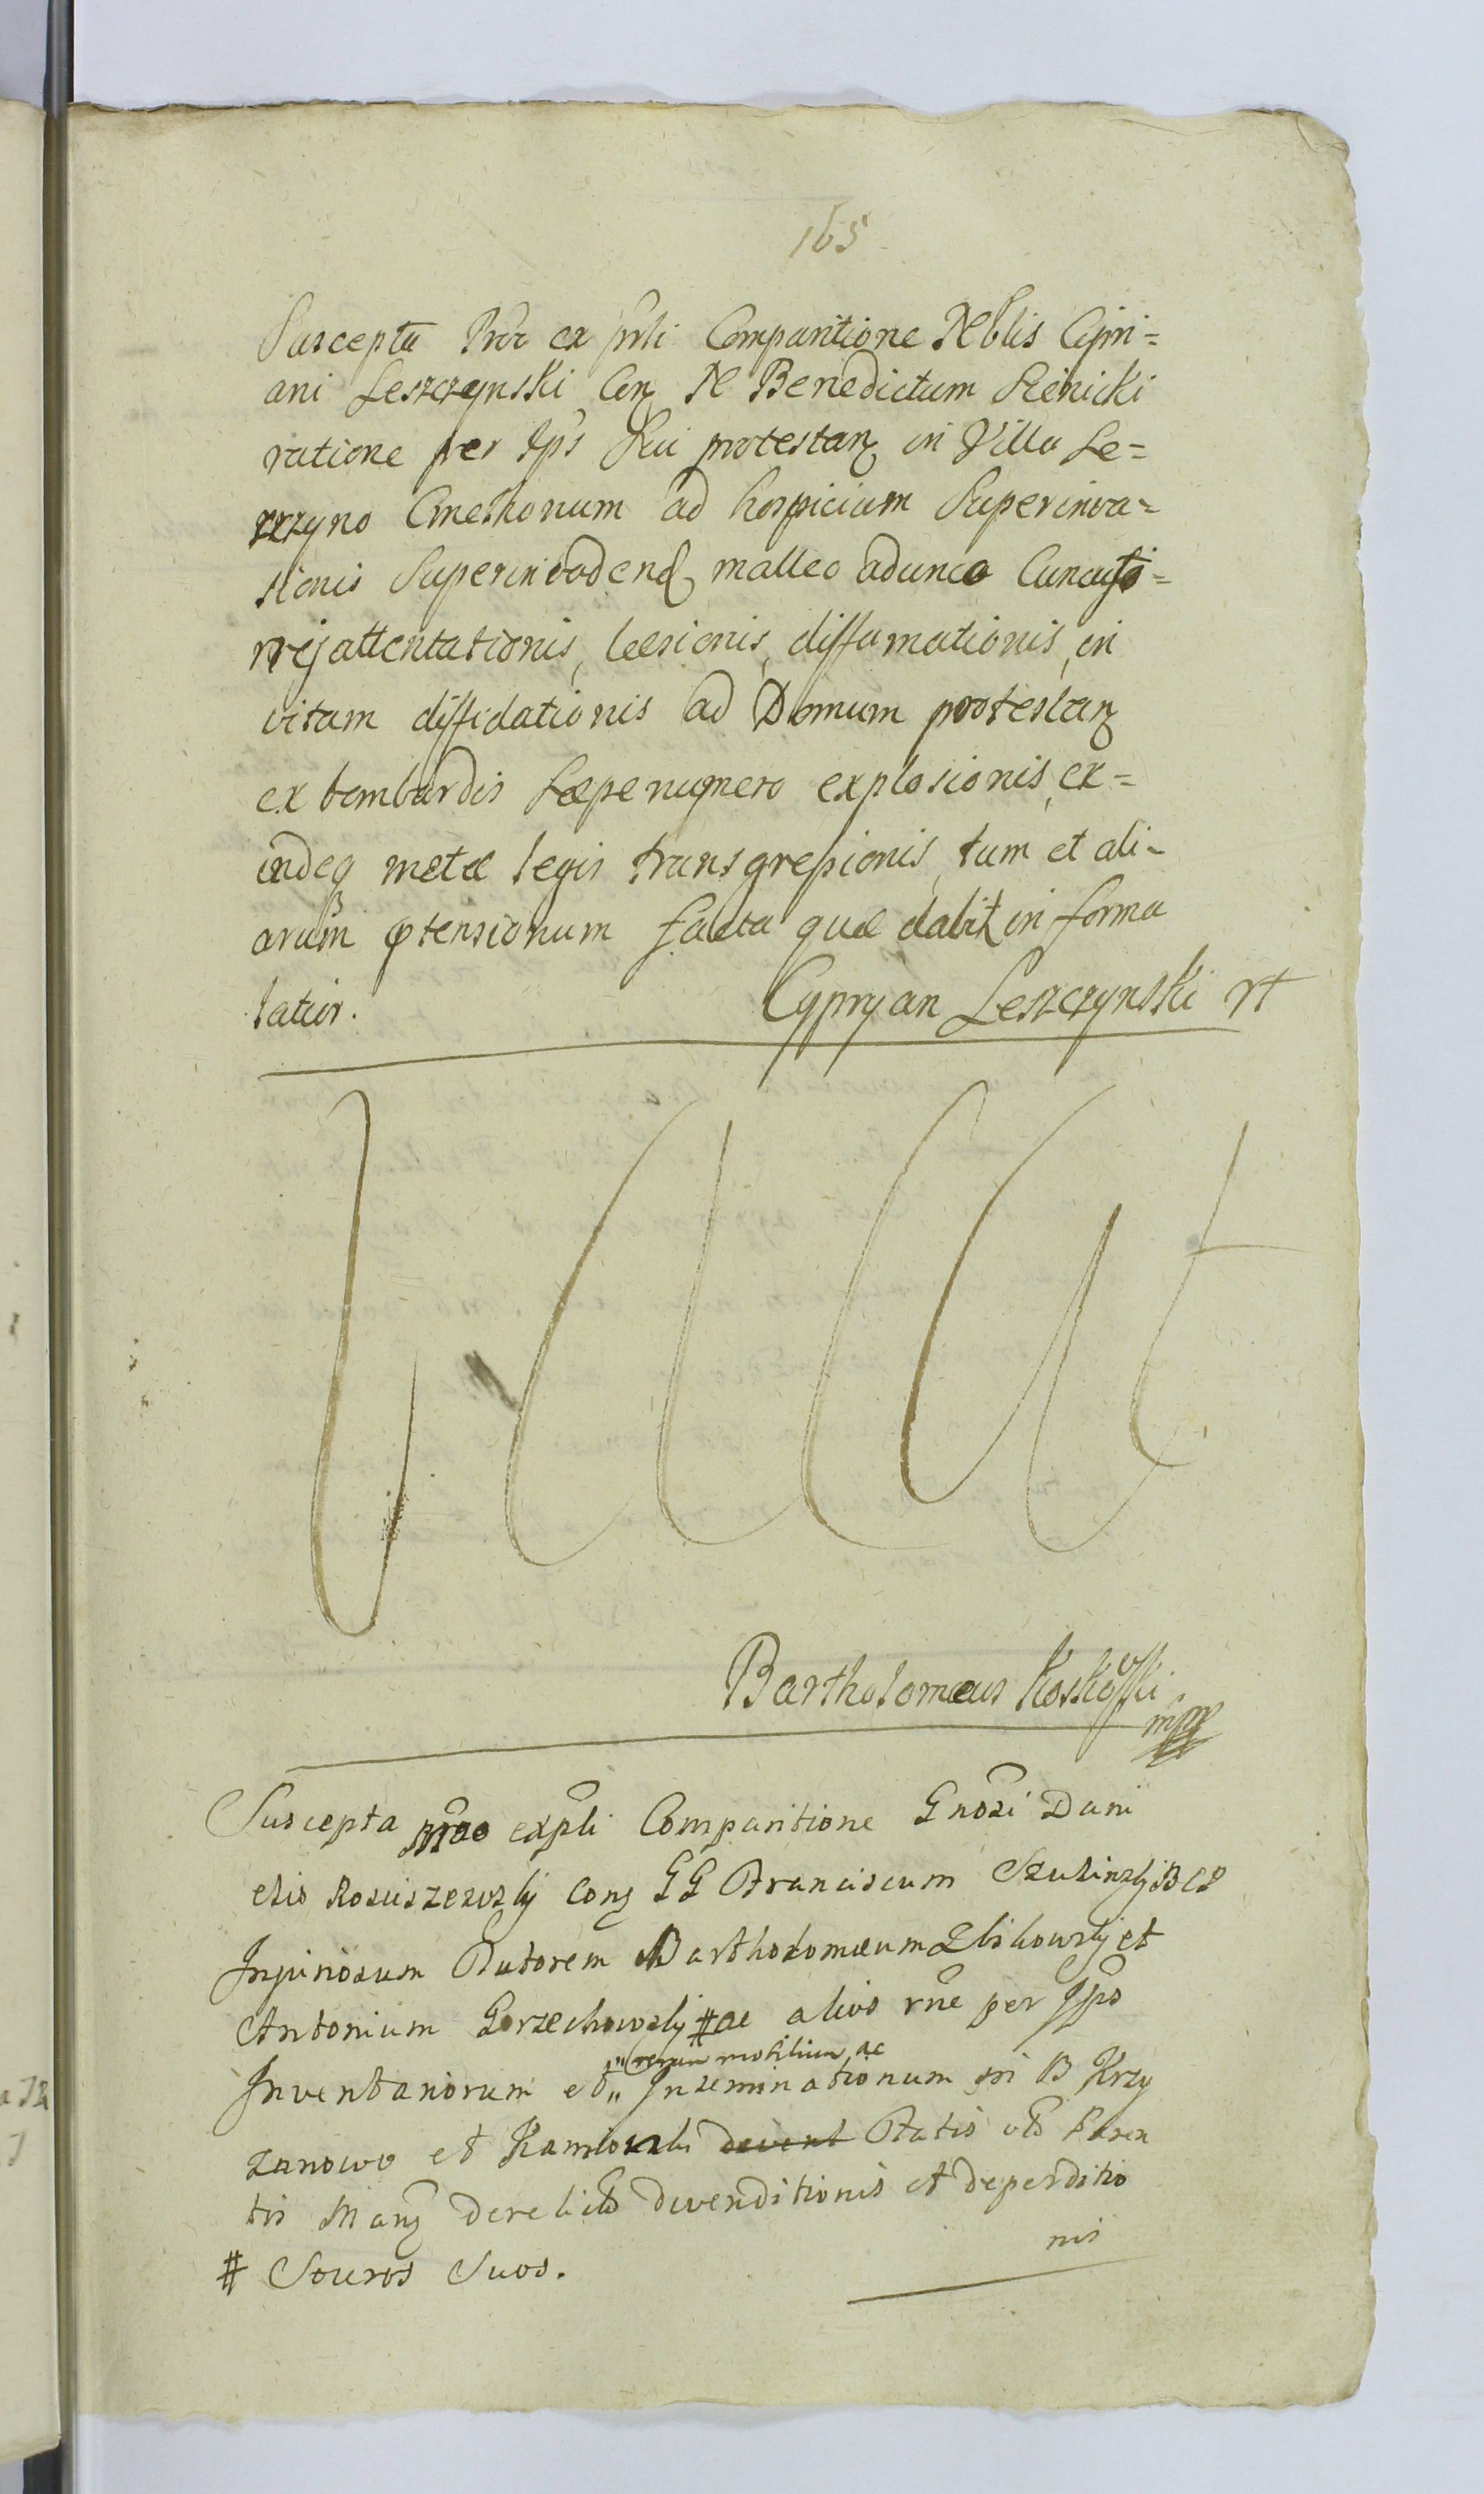 165
Suscepta Prõr ex pñli Comparitione Nblis Cipri=
ani Leszczynski Con N Benedictum Rėnicki
ratione per Ips Sui protestan in Villa Le=
rzyno Cmethonum ad hospicium Superinva=
sionis Superinvadend malleo adunco
attentationis, læsionis, diffamationis, in
vitam diffidationis ad Domum protestan
ex bombardis Sæpenumero explosionis, ex=
indeq metæ legis transgressionis, tum et ali-
arum ptensionum facta quæ dabit in forma
latior. Cypryan Leszczynski
Bartholomæus Koskowski
mpp
Suscepta expli Comparitione Gnosi Dani
elis Rosciszewsky Con GG Franciscum
Injuriosum Tutorem Bartholomæum et
Antonium Gorzechowsky # ac alios rne per Ips
" rerum mobilium ac
Inventariorum et " Inseminationum in B Krzy
zanowo et Kamionki Patis
tis derelict divenditionis et deperditio
nis
# Souros Suos.